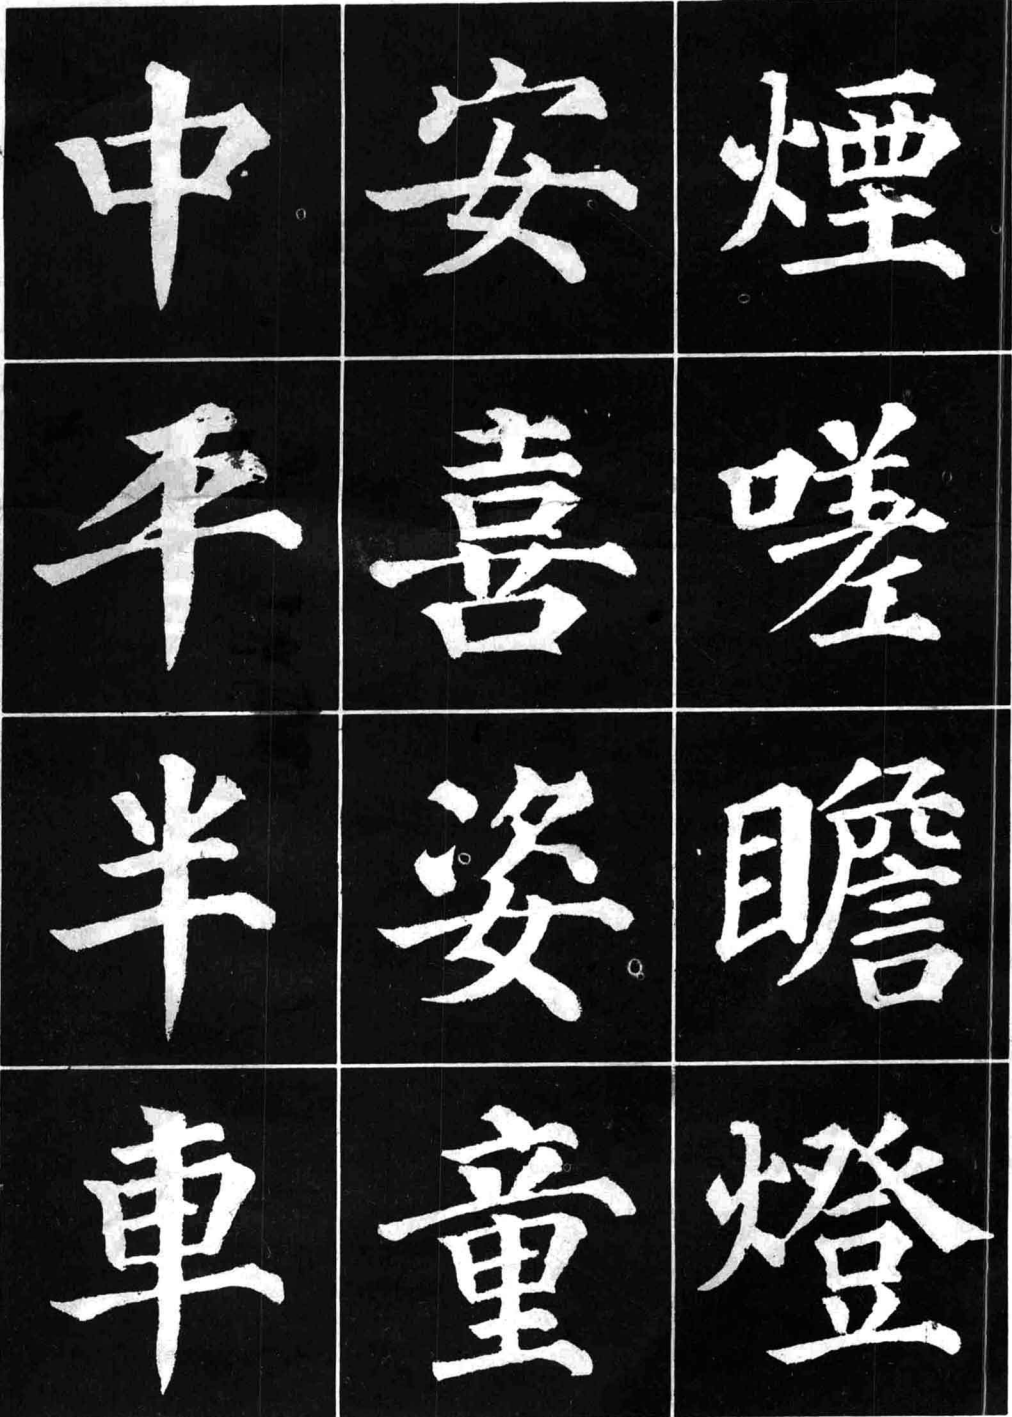 煙嗟瞻燈
安喜姿童
中平半車